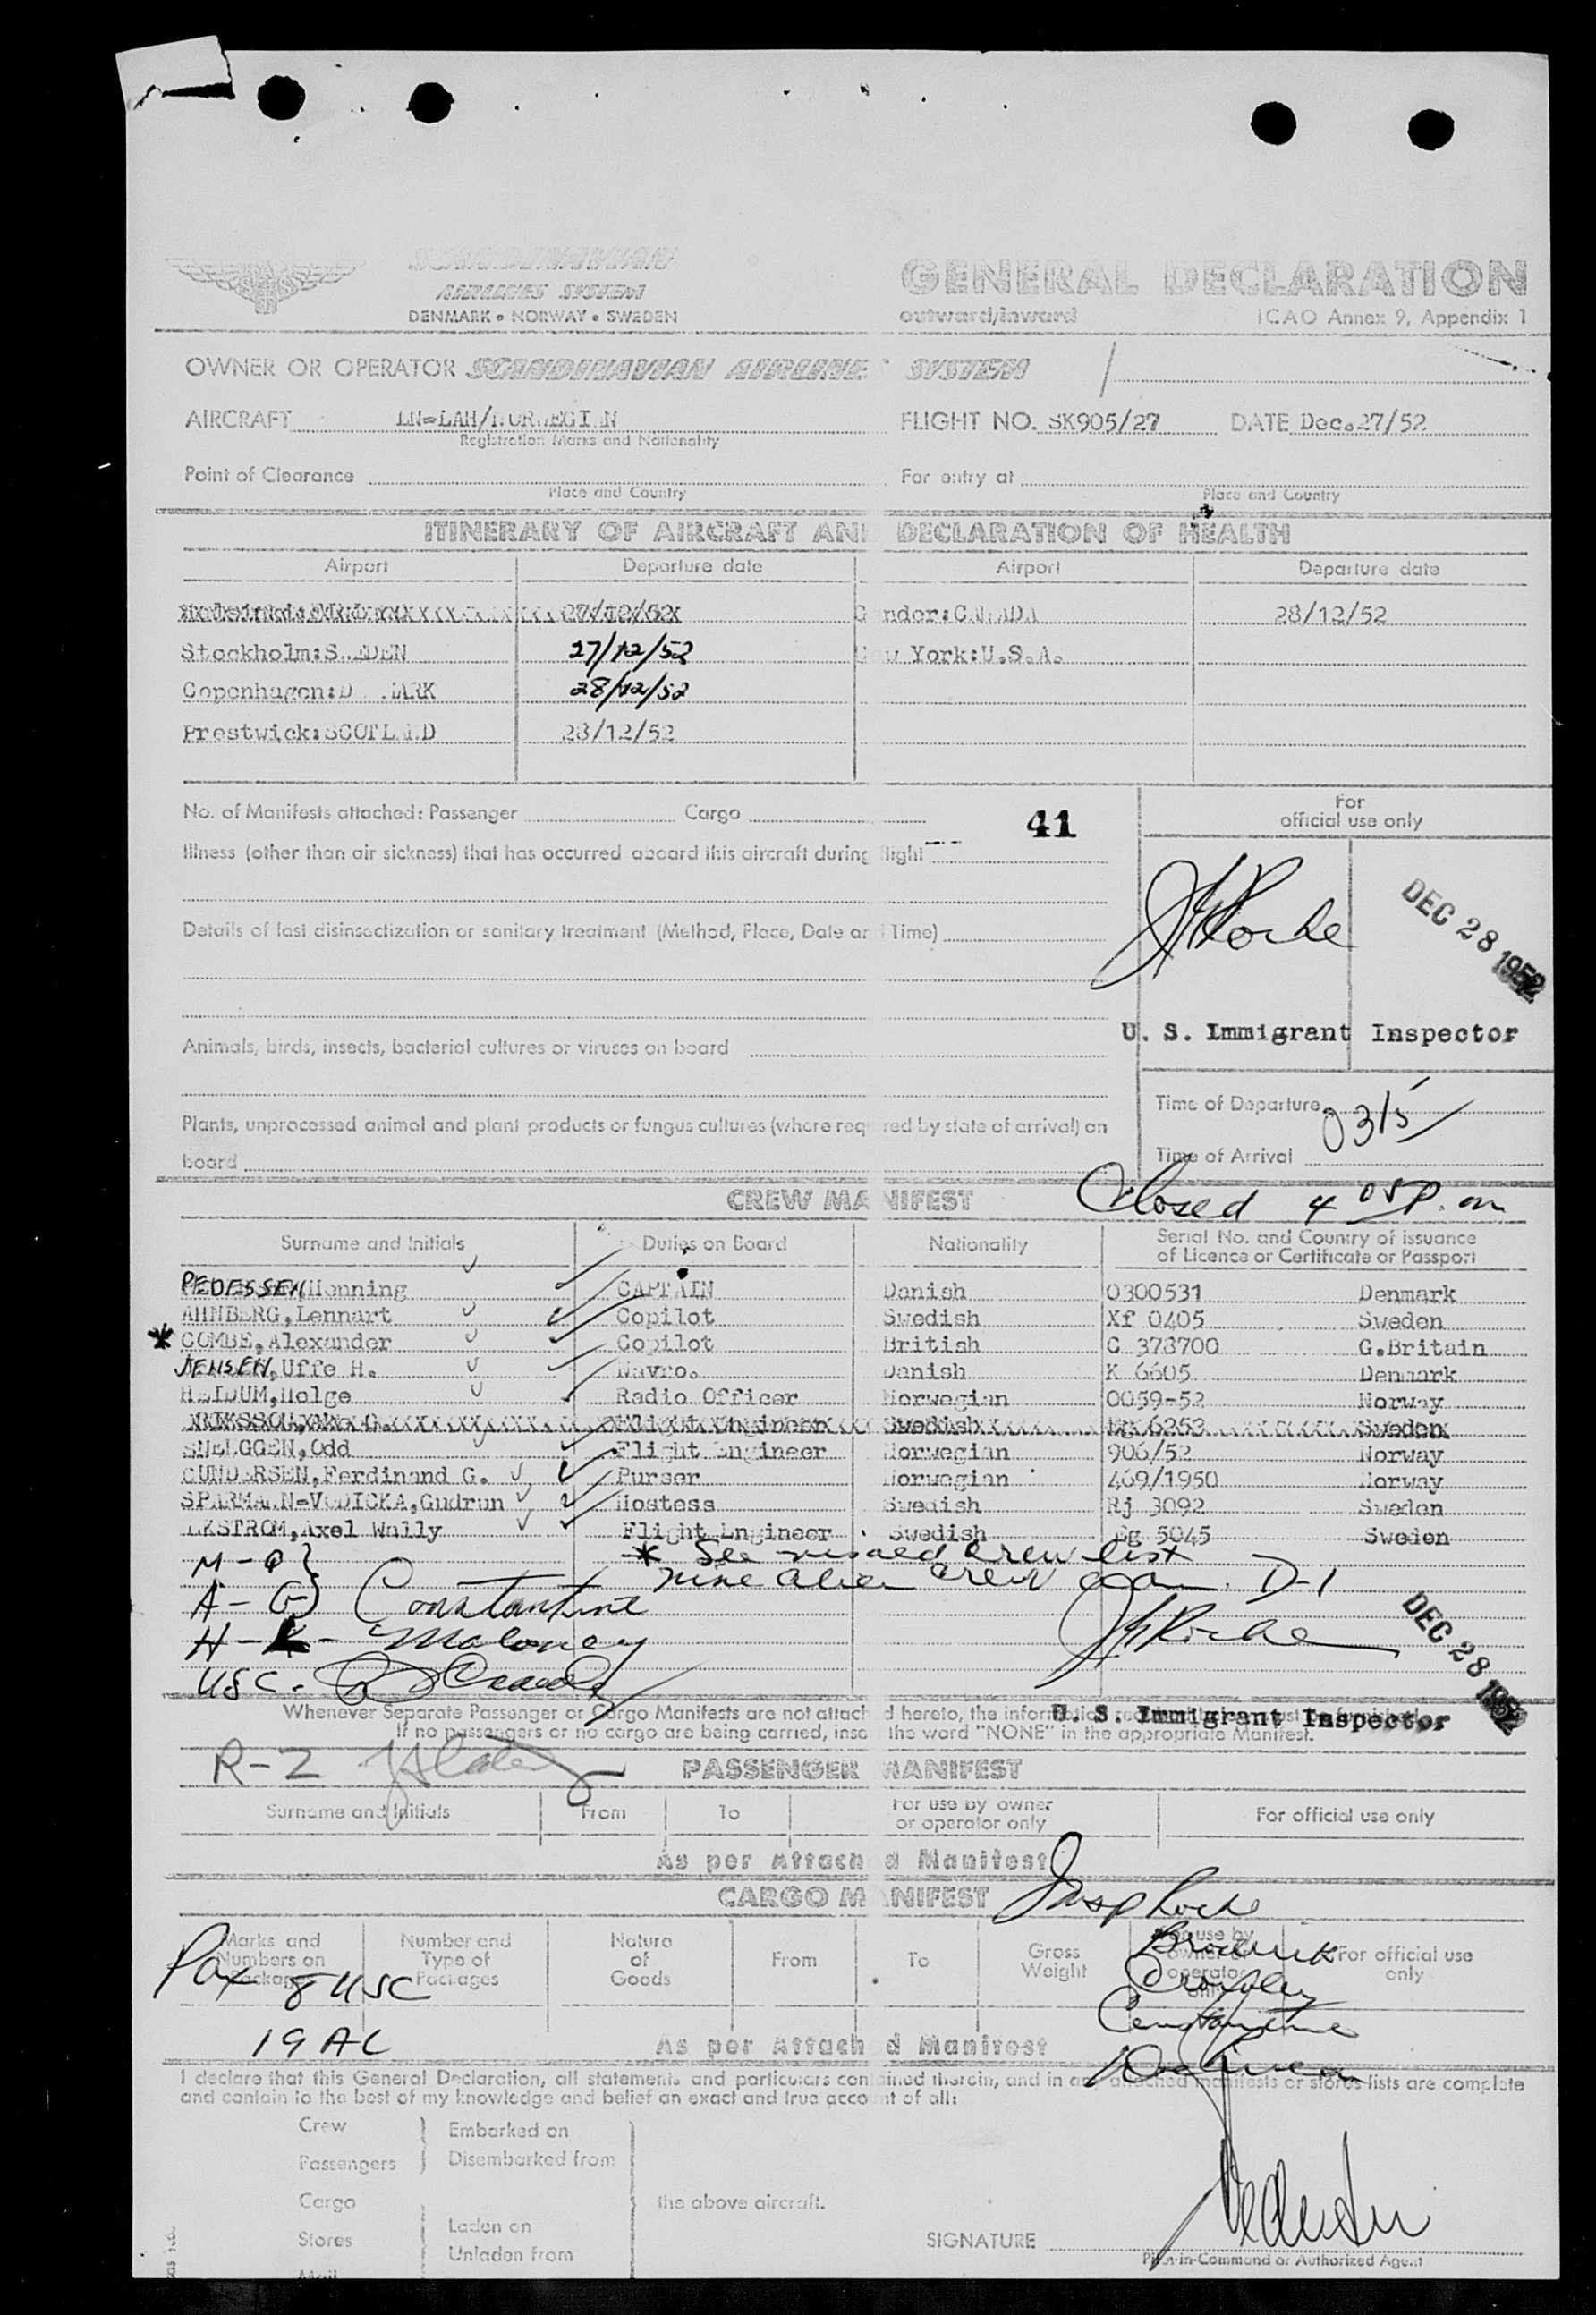 SCANDINAVIAN
AIRLINES SYSTEM
DENMARK • NORWAY • SWEDEN
GENERAL DECLARATION
outward/inward
ICAO Annex 9, Appendix 1
OWNER OR OPERATOR SCANDINAVIAN AIRLINE SYSTEM
AIRCRAFT LN-LAH/NORWEGIAN
Registration Marks and Nationality
FLIGHT NO. SK905/27 DATE Dec.27/52
Point of Clearance
Place and Country
For entry at
Place and Country
ITINERARY OF AIRCRAFT AND DECLARATION OF HEALTH
Airport Departure date Airport Departure date
27/12/52 Gander:CANADA 28/12/52
Stockholm:SWEDEN 27/12/52 New York:U.S.A.
Copenhagen:DENMARK 28/12/52
Prestwick:SCOTLAND 28/12/52
No. of Manifests attached: Passenger Cargo
41
For
official use only
Illness (other than air sickness) that has occurred aboard this aircraft during flight
JG Roche
DEC 28 1952
Details of last disinsectization or sanitary treatment (Method, Place, Date and Time)
U. S. Immigrant Inspector
Animals, birds, insects, bacterial cultures or viruses on board
Time of Departure 0315
Plants, unprocessed animal and plant products or fungus cultures (where required by state of arrival) on
board
Time of Arrival
Closed 4 05 P. m
CREW MANIFEST
Surname and Initials Duties on Board Nationality Serial No. and Country of issuance
of Licence or Certificate or Passport
PEDESSEN, Henning CAPTAIN Danish 0300531 Denmark
AHNBERG, Lennart Copilot Swedish Xf 0405 Sweden
* COMBE, Alexander Copilot British C 378700 G.Britain
JENSEN, Uffe H. Navro. Danish K 6605 Denmark
HEIDUM, Helge Radio Officer Norwegian 0059-52 Norway
Flight Engineer Swedish 6253 Sweden
SNEGGEN, Odd Flight Engineer Norwegian 906/52 Norway
GUNDERSEN, Ferdinand G. Purser Norwegian 469/1950 Norway
SPARMANN-VODICKA, Gudrun Hostess Swedish Rj 3092 Sweden
EKSTROM, Axel Wally Flight Engineer Swedish 5045 Sweden
M - Q }
* See revised crew list
A - G } Constantine
nine alien crew exam. D-1
H - K - Maloney
JG Roche
DEC 28 1952
USC.
U. S. Immigrant Inspector
Whenever Separate Passenger or Cargo Manifests are not attached hereto, the information
If no passengers or no cargo are being carried, insert the word "NONE" in the appropriate Manifest.
R-2
PASSENGER MANIFEST
Surname and Initials From To For use by owner
or operator only For official use only
As per Attached Manifest
CARGO MANIFEST
Insp Roche
Marks and
Numbers on
Packages
Number and
Type of
Packages
Nature
of
Goods
From To Gross
Weight
For use by
owner or
operator
only
For official use
only
Pax 8 USC
19 AL
Constantine
As per Attached Manifest
I declare that this General Declaration, all statements and particulars contained therein, and in any attached manifests or stores-lists are complete
and contain to the best of my knowledge and belief an exact and true account of all:
Crew
Passengers
Embarked on
Disembarked from
Cargo
Stores
Mail
Laden on
Unladen from
the above aircraft.
SIGNATURE
Pilot-in-Command or Authorized Agent